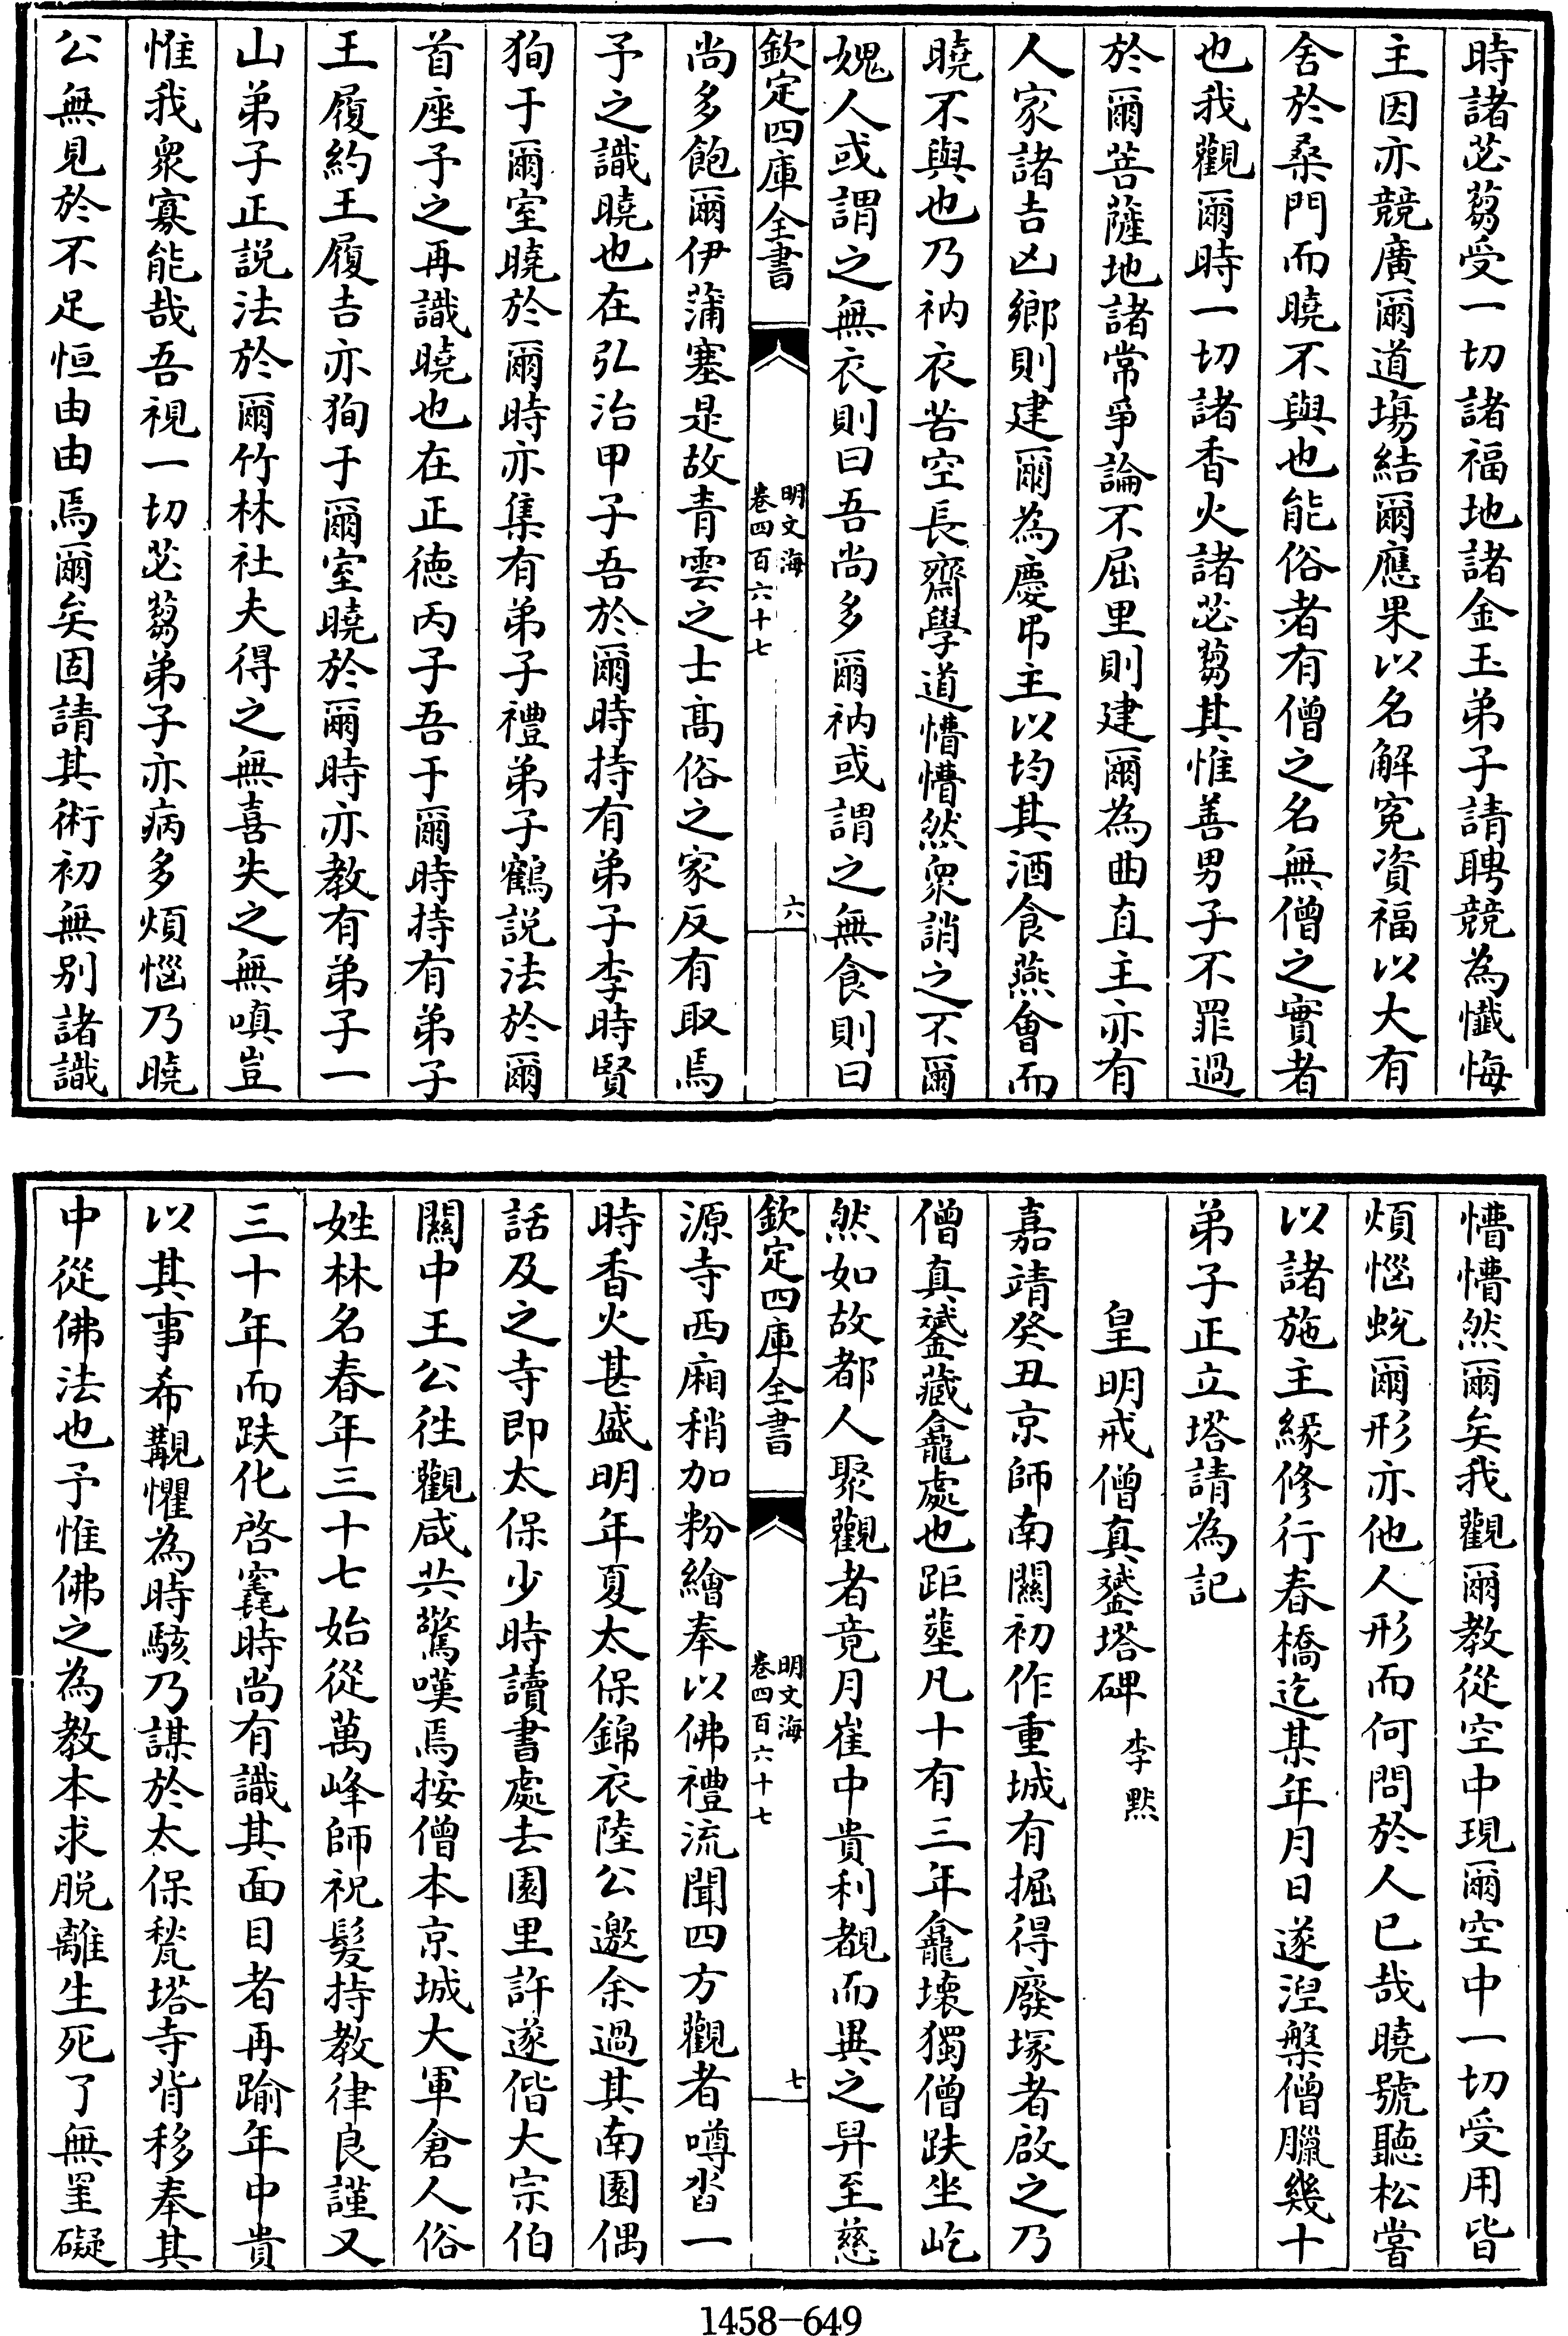 時諸苾蒭受一切諸福地諸金玉弟子請聘競為懺悔
主因亦競廣爾道塲結爾應果以名解寃資福以大有
舍於桑門而曉不與也能俗者有僧之名無僧之實者
也我觀爾時一切諸香火諸苾蒭其惟善男子不罪過
於爾菩薩地諸常爭論不屈里則建爾為曲直主亦有
人家諸吉凶鄉則建爾為慶弔主以均其酒食燕會而
曉不與也乃衲衣苦空長齋學道懵懵然衆誚之不爾
媿人或謂之無衣則曰吾尚多爾衲或謂之無食則曰
欽定四庫全書
明文海
卷四百六十七
六
尚多飽爾伊蒲塞是故青雲之士髙俗之家反有取焉
予之識曉也在弘治甲子吾於爾時持有弟子李時賢
狥于爾室曉於爾時亦集有弟子禮弟子鶴説法於爾
首座予之再識曉也在正徳丙子吾于爾時持有弟子
王履約王履吉亦狥于爾室曉於爾時亦教有弟子一
山弟子正説法於爾竹林社夫得之無喜失之無嗔豈
惟我衆寡能哉吾視一切苾蒭弟子亦病多煩惱乃曉
公無見於不足恒由由焉爾矣固請其術初無别諸識
懵懵然爾矣我觀爾教從空中現爾空中一切受用皆
煩惱蛻爾形亦他人形而何問於人已哉曉號聽松嘗
以諸施主緣修行春橋迄某年月日遂涅槃僧臘幾十
弟子正立塔請為記
皇明戒僧真鋈塔碑 李㸃
嘉靖癸丑京師南關初作重城有掘得廢塚者啟之乃
僧真鋈藏龕處也距塟凡十有三年龕壊獨僧趺坐屹
然如故都人聚觀者竟月崔中貴利覩而異之舁至慈
欽定四庫全書
明文海
卷四百六十七
七
源寺西廂稍加粉繪奉以佛禮流聞四方觀者噂沓一
時香火甚盛明年夏太保錦衣陸公邀余過其南園偶
話及之寺即太保少時讀書處去園里許遂偕大宗伯
關中王公徃觀咸共驚嘆焉按僧本京城大軍倉人俗
姓林名春年三十七始從萬峰師祝髮持教律良謹又
三十年而趺化啓窆時尚有識其面目者再踰年中貴
以其事希覯懼為時駭乃謀於太保甃塔寺背移奉其
中從佛法也予惟佛之為教本求脱離生死了無罣礙
1458-649